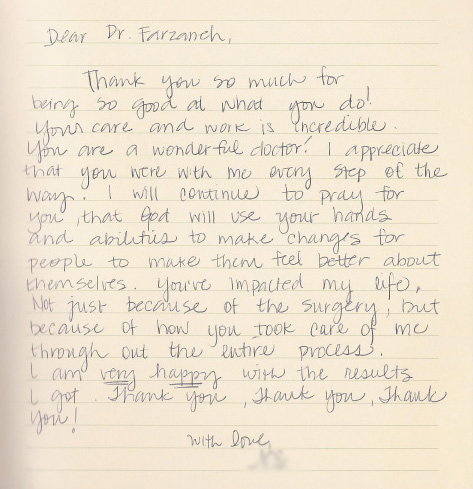 Dear Dr. Farzaneh,
Thank you so much for
being so good at what you do!
Your care and work is incredible.
You are a wonderful doctor! I appreciate
that you were with me every step of the
way. I will continue to pray for
you, that God will use your hands
and abilities to make changes for
people to make them feel better about
themselves. You've impacted my life.
Not just because of the surgery, but
because of how you took care of me
through out the entire process.
I am very happy with the results
I got. Thank you, Thank you, Thank
you!
With love,